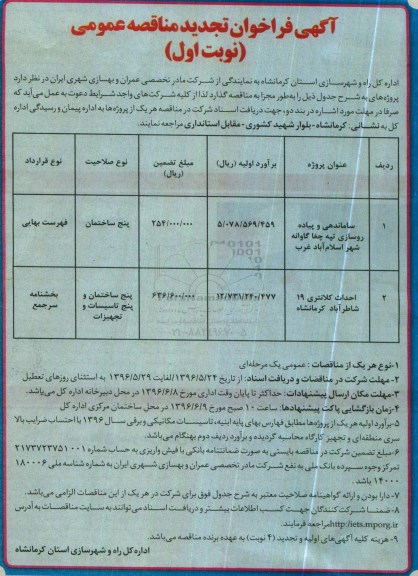 آگهی فراخوان تجدید مناقصه عمومی
(نوبت اول)
اداره کل راه و شهرسازی استان کرمانشاه به نمایندگی از شرکت مادر تخصصی عمران و بهسازی شهری ایران در نظر دارد
پروژه‌های به شرح جدول ذیل را به‌طور مجزا به مناقصه گذارد لذا از کلیه شرکت‌های واجد شرایط دعوت به عمل می‌آید که
صرفا در مهلت مورد اشاره در بند دو، جهت دریافت اسناد شرکت در مناقصه هر یک از پروژه‌ها به اداره پیمان و رسیدگی اداره
کل به نشانی: کرمانشاه - بلوار شهید کشوری - مقابل استانداری مراجعه نمایند.
ردیف عنوان پروژه برآورد اولیه (ریال) مبلغ تضمین (ریال) نوع صلاحیت نوع قرارداد
۱ ساماندهی و پیاده روسازی تپه چغا گاوانه شهر اسلام‌آباد غرب ۵/۰۷۸/۵۶۹/۴۵۹ ۲۵۴/۰۰۰/۰۰۰ پنج ساختمان فهرست بهایی
۲ احداث کلانتری ۱۹ شاطرآباد کرمانشاه ۱۲/۷۳۱/۲۴۰/۴۷۷ ۶۳۶/۶۰۰/۰۰۰ پنج ساختمان و پنج تاسیسات و تجهیزات بخشنامه سرجمع
۱-نوع هر یک از مناقصات : عمومی یک مرحله‌ای
۲- مهلت شرکت در مناقصات و دریافت اسناد: از تاریخ ۱۳۹۶/۵/۲۴ لغایت ۱۳۹۶/۵/۲۹ به استثنای روزهای تعطیل
۳-مهلت مکان ارسال پیشنهادات: حداکثر تا پایان وقت اداری مورخ ۱۳۹۶/۶/۸ در محل دبیرخانه اداره کل می‌باشد.
۴-زمان بازگشایی پاکت پیشنهادها: ساعت ۱۰ صبح مورخ ۱۳۹۶/۶/۹ در محل ساختمان مرکزی اداره کل
۵-برآورد اولیه هر یک از پروژه‌ها مطابق فهارس بهای پایه ابنیه، تاسیسات مکانیکی و برقی سال ۱۳۹۶ با احتساب ضرایب بالا
سری منطقه‌ای و تجهیز کارگاه محاسبه گردیده و برآورد ردیف دوم بهنگام می‌باشد.
۶-مبلغ تضمین شرکت در مناقصه بایستی به صورت ضمانتنامه بانکی یا فیش واریزی به حساب شماره ۲۱۷۳۷۲۳۷۵۱۰۰۱
تمرکز وجوه سپرده بانک ملی به نفع شرکت مادر تخصصی عمران و بهسازی شهری ایران به شماره شناسه ملی ۱۸۰۰۰۶
۱۴۰۰۰ باشد
۷- دارا بودن و ارائه گواهینامه صلاحیت معتبر به شرح جدول فوق برای شرکت در هر یک از این مناقصات الزامی می‌باشد.
۸-ضمنا شرکت کنندگان جهت کسب اطلاعات بیشتر و دریافت اسناد می‌توانند به سایت مناقصات به آدرس
http://iets.mporg.ir مراجعه فرمایند.
۹- هزینه کلیه آگهی‌های اولیه و تجدید (۴ نوبت) به عهده برنده مناقصه می‌باشد.
اداره کل راه و شهرسازی استان کرمانشاه